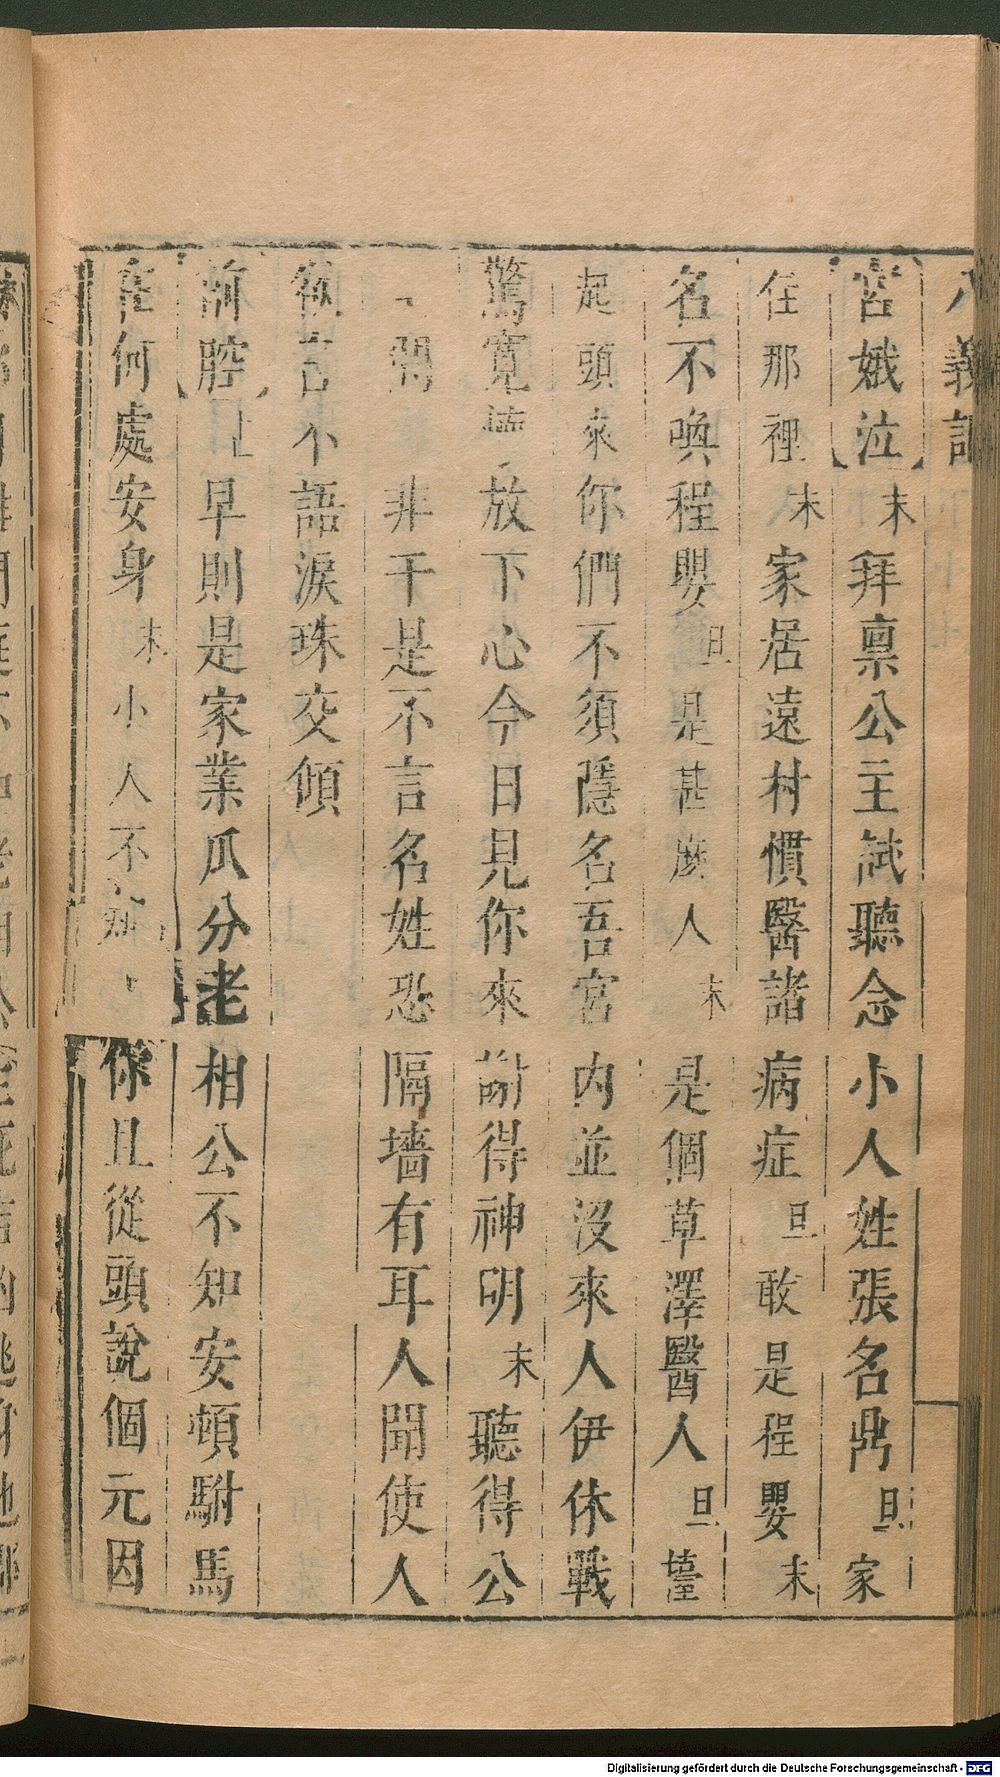 八義記
宮娥泣末拜禀公主試聽念小人姓張名鼎旦家
住那裡末家居遠村慣醫諸病症旦敢是程嬰末
名不喚程嬰旦是甚麽人末是個草澤醫人旦擡
起頭來你們不須隱名吾宮内並沒來人伊休戰
驚寬 放下心今日見你來謝得神明末聽得公
非干是不言名姓恐隔墻有耳人聞使人
欲言不語淚珠交傾
前腔旦早則是家業瓜分老相公不知安頓駙馬
在何處安身末小人不知旦你且從頭說個元因
Digitalisierung gefördert durch die Deutsche Forschungsgemeinschaft - DFG